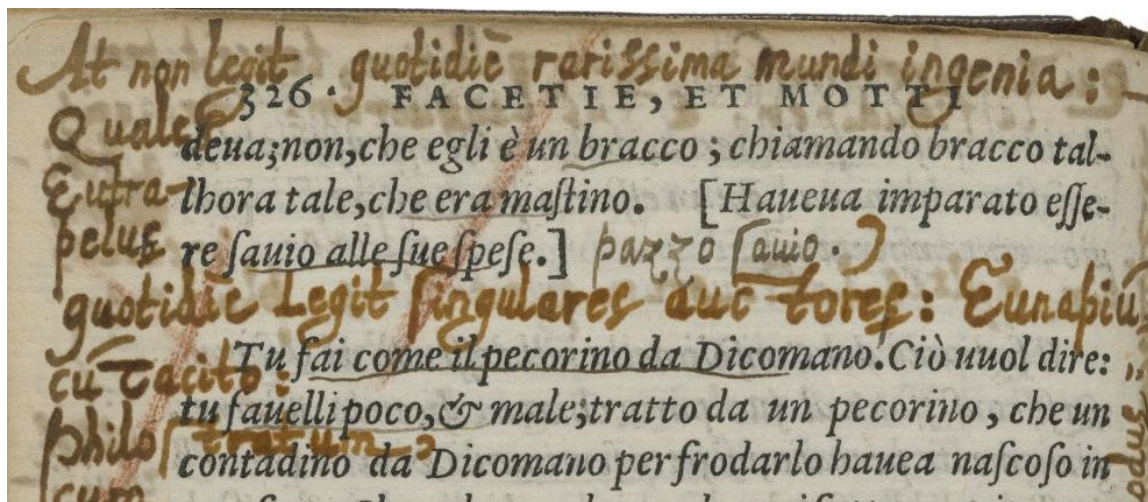 At non legit quotidiē rarissima mundi ingenia:
326. FACETIE, ET MOTTI
Quales
deua; non, che egli è un bracco; chiamando bracco tal-
Eutra-
lhora tale, che era maſtino. [Haueua imparato eſſe-
pelus
re ſauio alle ſue ſpeſe.] pazzo ſauio.
quotidiē Legit ſingulares auctores: Eunapiū
Tu fai come il pecorino da Dicomano. Ciò uuol dire:
cū Tacito:
tu fauelli poco, & male; tratto da un pecorino, che un
philoſtratum
contadino da Dicomano per frodarlo hauea naſcoſo in
cum